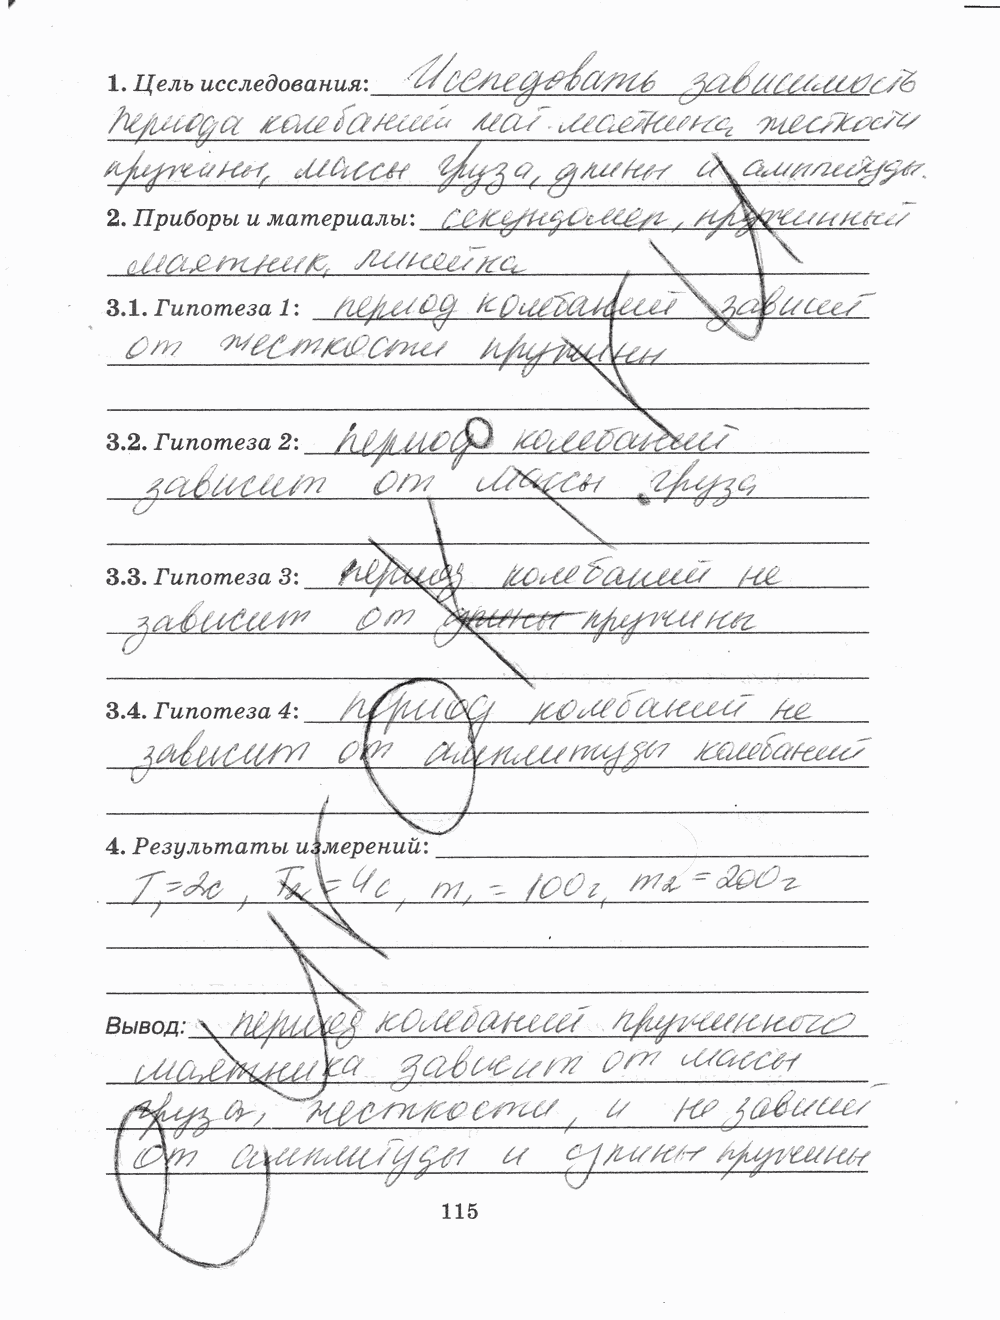 1. Цель исследования: Исследовать зависимость
периода колебаний мат. маятника, жесткости
пружины, массы груза, длины и амплитуды.
2. Приборы и материалы: секундомер, пружинный
маятник, линейка
3.1. Гипотеза 1: период колебаний зависит
от жесткости пружины
3.2. Гипотеза 2: период колебаний
зависит от массы груза
3.3. Гипотеза 3: период колебаний не
зависит от длины пружины
3.4. Гипотеза 4: период колебаний не
зависит от амплитуды колебаний
4. Результаты измерений:
T₁=2с, T₂=4с, m₁=100г, m₂=200г
Вывод: период колебаний пружинного
маятника зависит от массы
груза, жесткости, и не зависит
от амплитуды и длины пружины
115